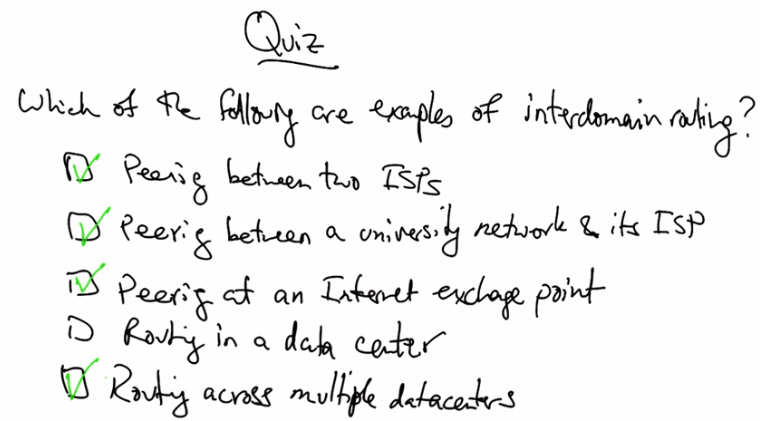 Quiz
Which of the following are examples of interdomain routing?
Peering between two ISPs
Peering between a university network & its ISP
Peering at an Internet exchange point
Routing in a data center
Routing across multiple datacenters